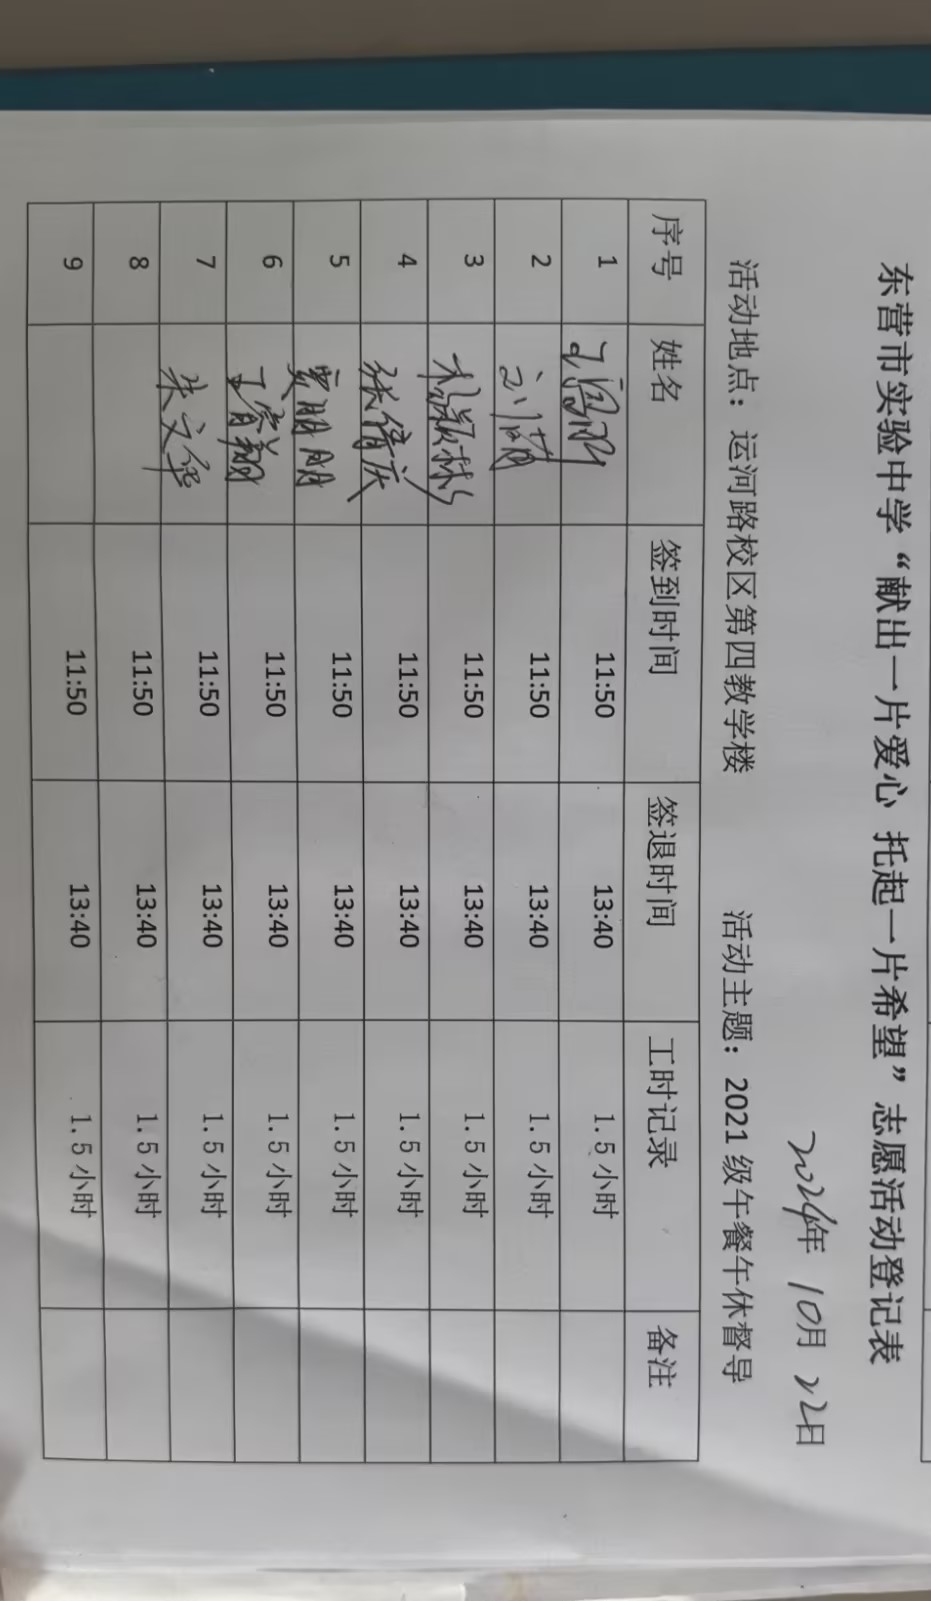 东营市实验中学“献出一片爱心 托起一片希望”志愿活动登记表
2024年 10月 22日
活动地点：运河路校区第四教学楼 活动主题：2021级午餐午休督导
序号 姓名 签到时间 签退时间 工时记录 备注
1 11:50 13:40 1.5小时
2 刘 11:50 13:40 1.5小时
3 杨颖彬 11:50 13:40 1.5小时
4 张倩庆 11:50 13:40 1.5小时
5 窦朋朋 11:50 13:40 1.5小时
6 王睿翔 11:50 13:40 1.5小时
7 朱文华 11:50 13:40 1.5小时
8 11:50 13:40 1.5小时
9 11:50 13:40 1.5小时